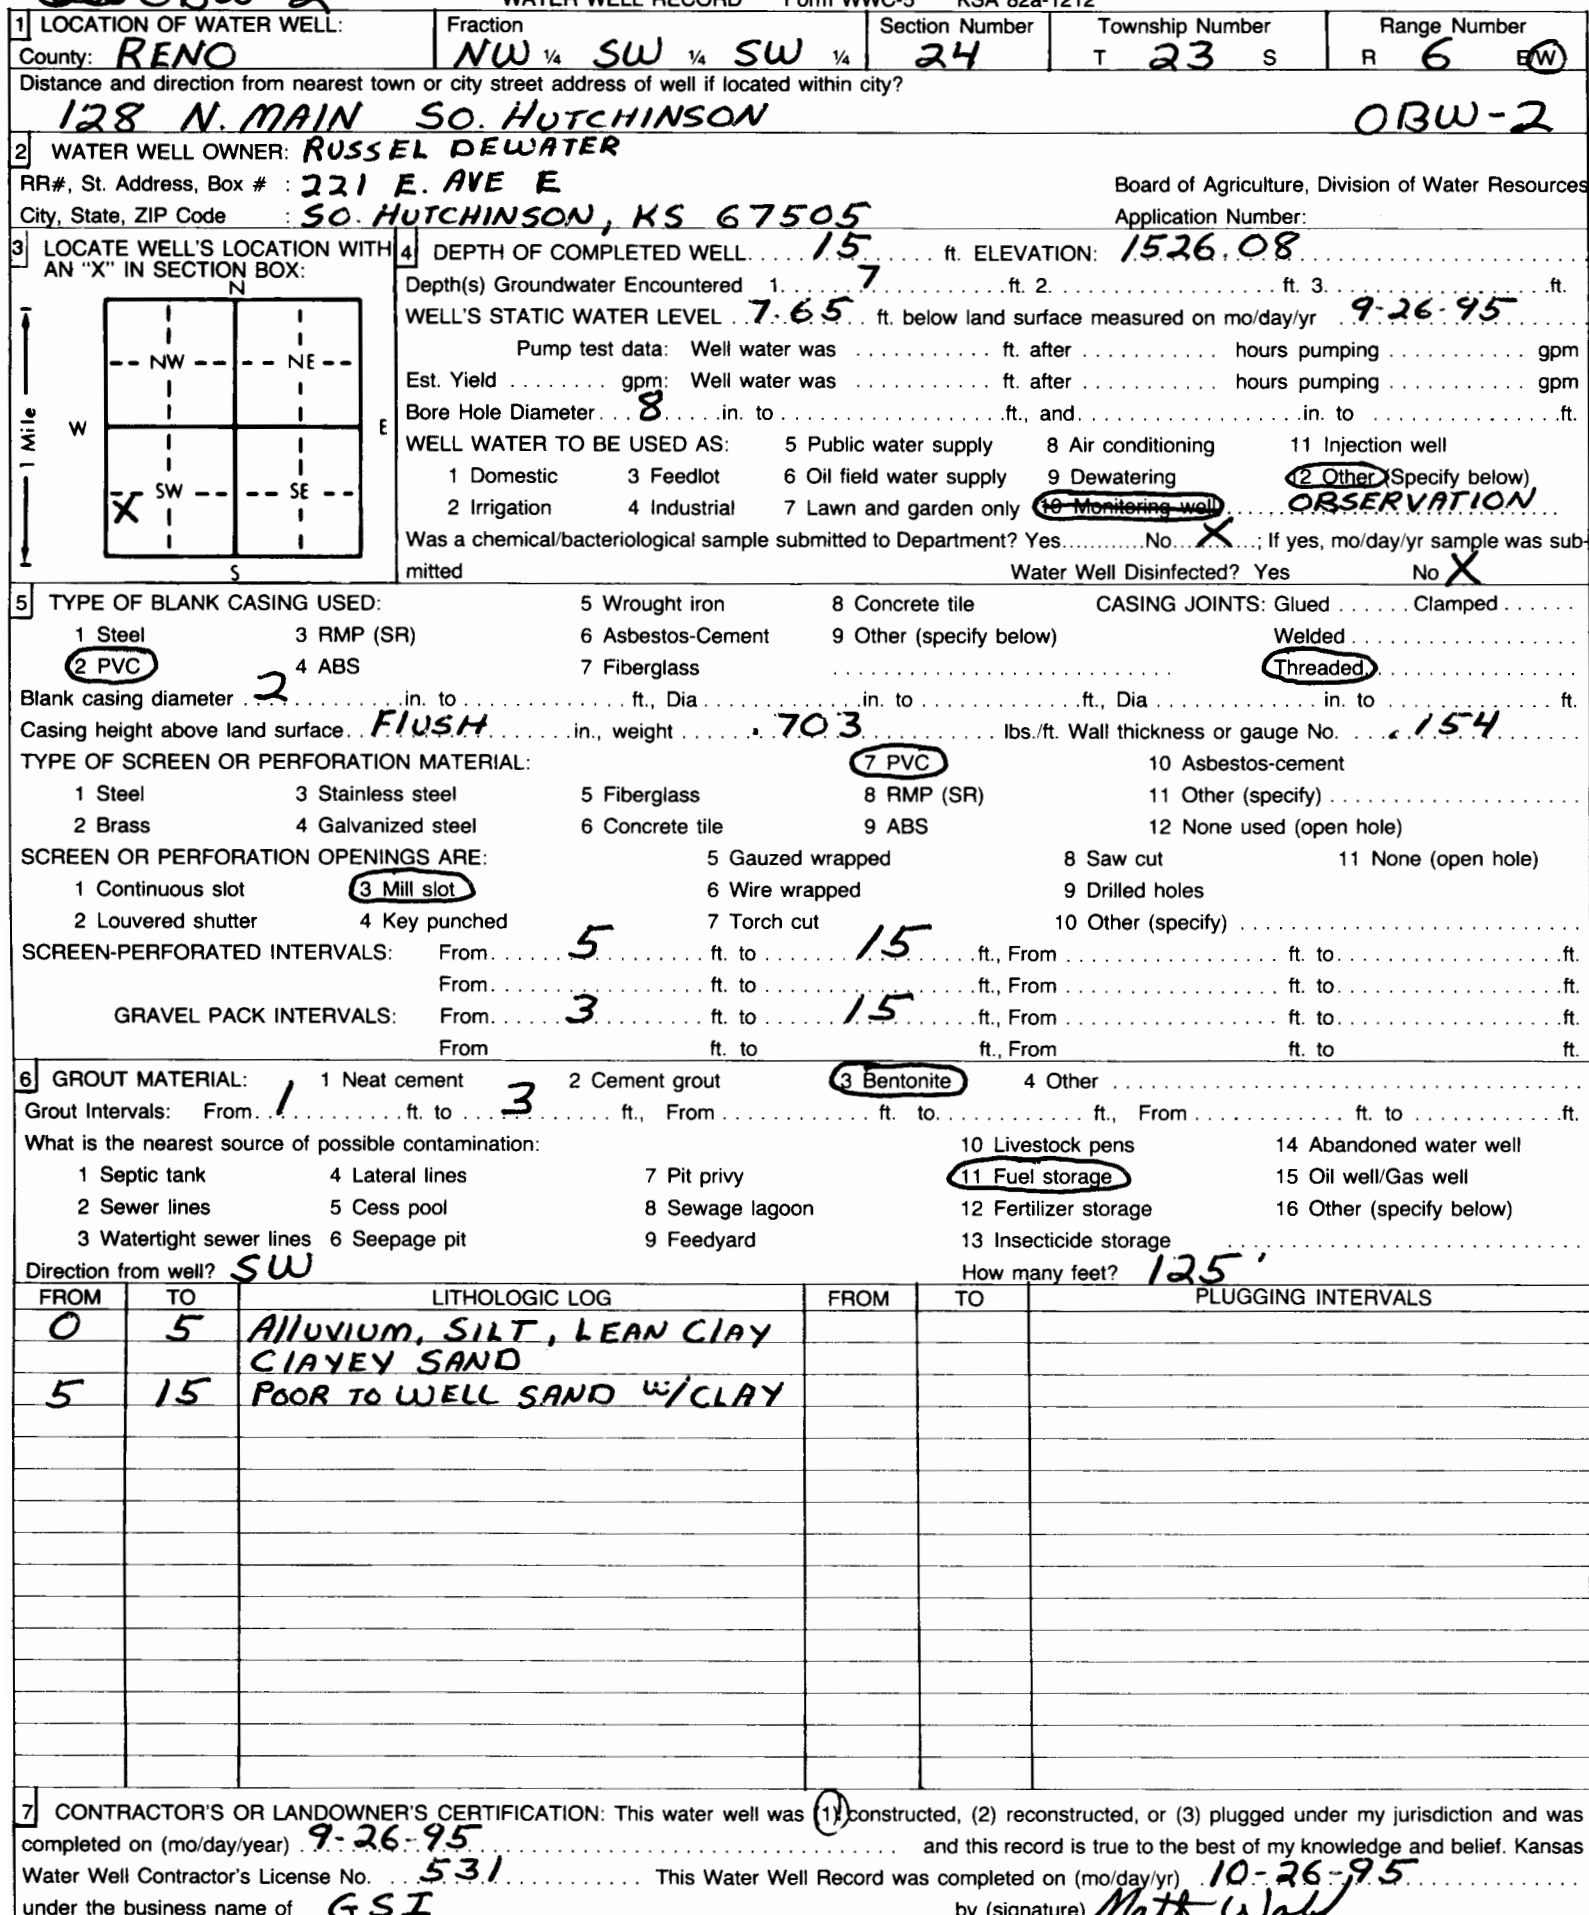 OBW-2 WATER WELL RECORD Form WWC-5 KSA 82a-1212
1 LOCATION OF WATER WELL: Fraction Section Number Township Number Range Number
County: RENO NW ¼ SW ¼ SW ¼ 24 T 23 S R 6 E/W
Distance and direction from nearest town or city street address of well if located within city?
128 N. MAIN SO. HUTCHINSON OBW-2
2 WATER WELL OWNER: RUSSEL DEWATER
RR#, St. Address, Box # : 221 E. AVE E Board of Agriculture, Division of Water Resources
City, State, ZIP Code : SO. HUTCHINSON, KS 67505 Application Number:
3 LOCATE WELL'S LOCATION WITH AN "X" IN SECTION BOX:
N
NW NE
W E
1 Mile
SW SE
X
S
4 DEPTH OF COMPLETED WELL 15 ft. ELEVATION: 1526.08
Depth(s) Groundwater Encountered 1. 7 ft. 2. ft. 3. ft.
WELL'S STATIC WATER LEVEL 7.65 ft. below land surface measured on mo/day/yr 9-26-95
Pump test data: Well water was ft. after hours pumping gpm
Est. Yield gpm: Well water was ft. after hours pumping gpm
Bore Hole Diameter 8 in. to ft., and in. to ft.
WELL WATER TO BE USED AS: 5 Public water supply 8 Air conditioning 11 Injection well
1 Domestic 3 Feedlot 6 Oil field water supply 9 Dewatering 12 Other (Specify below)
2 Irrigation 4 Industrial 7 Lawn and garden only 10 Monitoring well OBSERVATION
Was a chemical/bacteriological sample submitted to Department? Yes No X ; If yes, mo/day/yr sample was sub-
mitted Water Well Disinfected? Yes No X
5 TYPE OF BLANK CASING USED: 5 Wrought iron 8 Concrete tile CASING JOINTS: Glued Clamped
1 Steel 3 RMP (SR) 6 Asbestos-Cement 9 Other (specify below) Welded
2 PVC 4 ABS 7 Fiberglass Threaded
Blank casing diameter 2 in. to ft., Dia in. to ft., Dia in. to ft.
Casing height above land surface FlUSH in., weight .703 lbs./ft. Wall thickness or gauge No. .154
TYPE OF SCREEN OR PERFORATION MATERIAL: 7 PVC 10 Asbestos-cement
1 Steel 3 Stainless steel 5 Fiberglass 8 RMP (SR) 11 Other (specify)
2 Brass 4 Galvanized steel 6 Concrete tile 9 ABS 12 None used (open hole)
SCREEN OR PERFORATION OPENINGS ARE: 5 Gauzed wrapped 8 Saw cut 11 None (open hole)
1 Continuous slot 3 Mill slot 6 Wire wrapped 9 Drilled holes
2 Louvered shutter 4 Key punched 7 Torch cut 10 Other (specify)
SCREEN-PERFORATED INTERVALS: From 5 ft. to 15 ft., From ft. to ft.
From ft. to ft., From ft. to ft.
GRAVEL PACK INTERVALS: From 3 ft. to 15 ft., From ft. to ft.
From ft. to ft., From ft. to ft.
6 GROUT MATERIAL: 1 Neat cement 2 Cement grout 3 Bentonite 4 Other
Grout Intervals: From 1 ft. to 3 ft., From ft. to ft., From ft. to ft.
What is the nearest source of possible contamination: 10 Livestock pens 14 Abandoned water well
1 Septic tank 4 Lateral lines 7 Pit privy 11 Fuel storage 15 Oil well/Gas well
2 Sewer lines 5 Cess pool 8 Sewage lagoon 12 Fertilizer storage 16 Other (specify below)
3 Watertight sewer lines 6 Seepage pit 9 Feedyard 13 Insecticide storage
Direction from well? SW How many feet? 125'
FROM TO LITHOLOGIC LOG FROM TO PLUGGING INTERVALS
0 5 AllUVIUM, SILT, LEAN ClAY
ClAYEY SAND
5 15 POOR TO WELL SAND W/CLAY
7 CONTRACTOR'S OR LANDOWNER'S CERTIFICATION: This water well was (1) constructed, (2) reconstructed, or (3) plugged under my jurisdiction and was
completed on (mo/day/year) 9-26-95 and this record is true to the best of my knowledge and belief. Kansas
Water Well Contractor's License No. 531 This Water Well Record was completed on (mo/day/yr) 10-26-95
under the business name of GSI by (signature) Matt